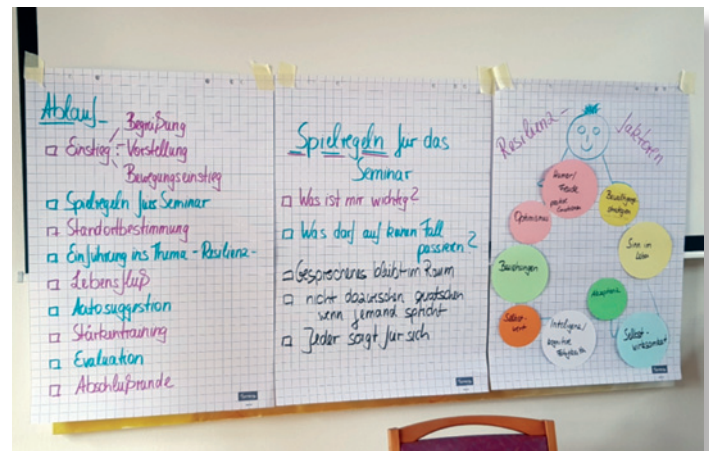 Ablauf
Begrüßung
□ Einstieg - Vorstellung
Bewegungseinstieg
□ Spielregeln fürs Seminar
□ Standortbestimmung
□ Einführung ins Thema - Resilienz -
□ Lebensfluß
□ Autosuggestion
□ Stärkentraining
□ Evaluation
□ Abschlußrunde
Spielregeln für das
Seminar
□ Was ist mir wichtig?
□ Was darf auf keinen Fall
passieren?
□ Gesprochenes bleibt im Raum
□ nicht dazwischen quatschen
wenn jemand spricht
□ Jeder sorgt für sich
Resilienz-
faktoren
Humor/
Freude
positive
Emotionen
Bewältigungs-
strategien
Optimismus
Sinn im
Leben
Beziehungen
Akzeptanz
Selbst-
wert
Intelligenz/
kognitive
Selbst-
wirksamkeit